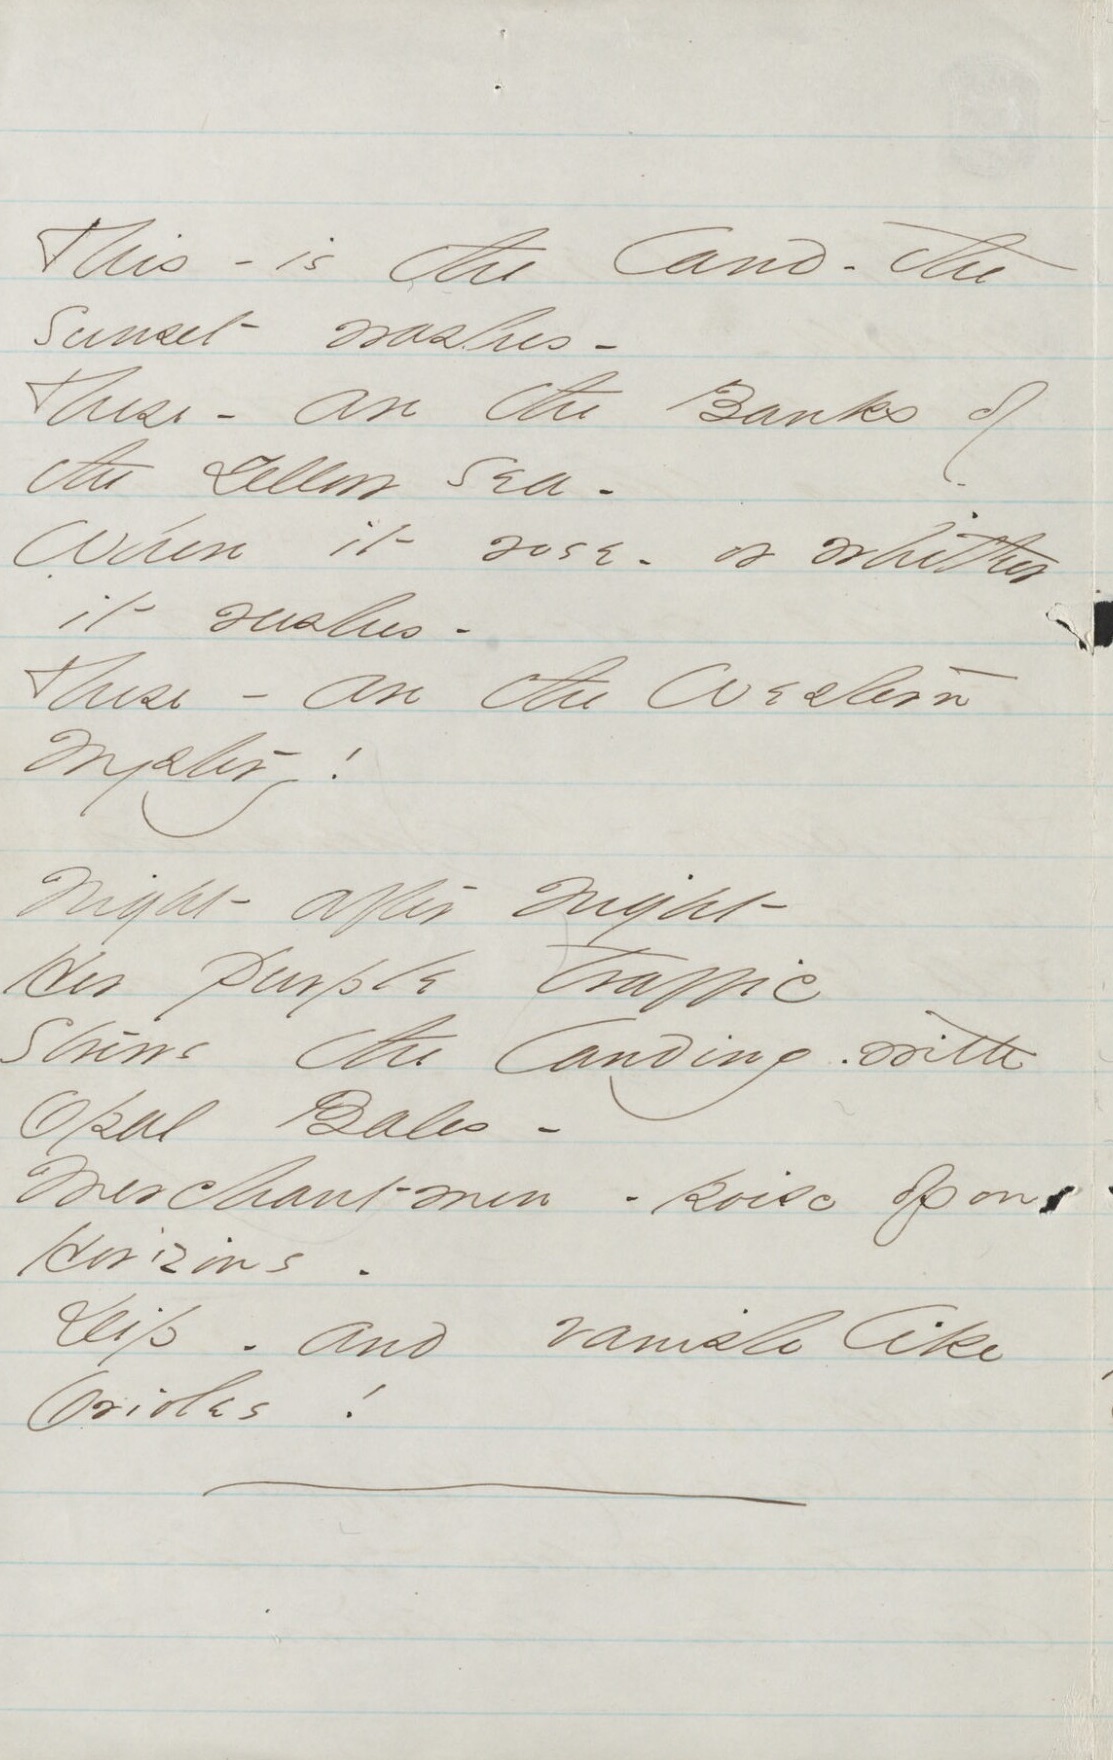 This - is the land - the
Sunset washes -
These - are the Banks of
the Yellow Sea -
Where it rose - or whither
it rushes -
These - are the Western
Mystery !
Night after Night
Her Purple Traffic
Strews the Landing - with
Opal Bales -
Merchantmen - poise opon
Horizons -
Dip - and vanish like
Orioles !